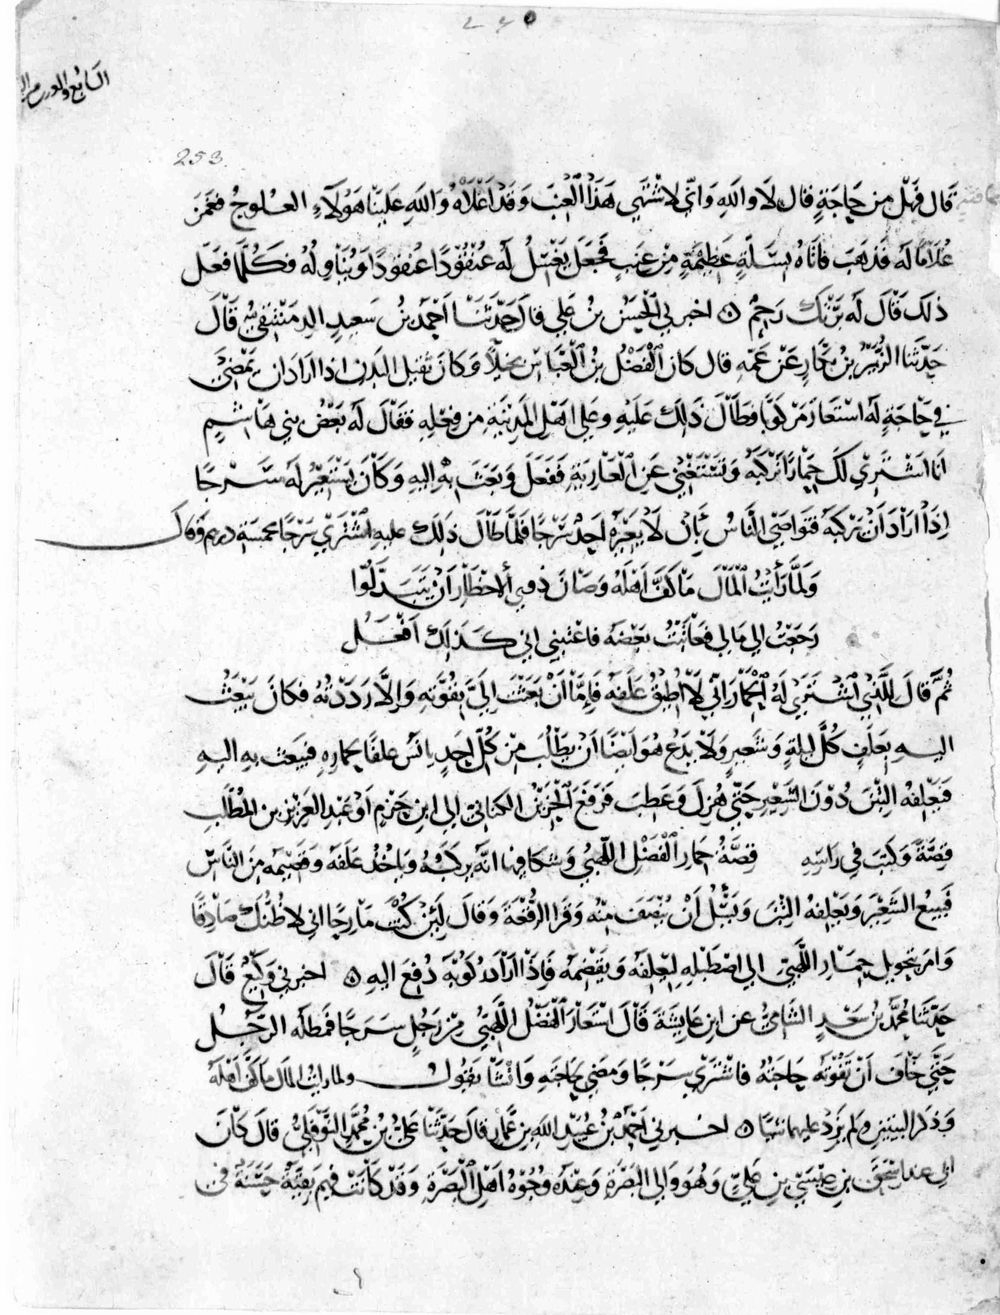 ٢٤٥
253
قال فهل من حاجة قال لا والله واني لاشتهي هذا العنب وقد اغلاه والله علينا هؤلاء العلوج فغمز
غلاما له فذهب فاتاه بسلة عظيمة من عنب فجعل يغسل له عنقودا عنقودا ويناوله فكلما فعل
ذلك قال له برتك رحم ۝ اخبرني الحسن بن علي قال حدثنا احمد بن سعيد الدمشقي قال
حدثنا الزبير بن بكار عن عمه قال كان الفضل بن العباس بخيلا وكان ثقيل البدن اذا اراد ان يمضي
في حاجة له استعار مركوبا فطال ذلك عليه وعلى اهل المدينة من فعله فقال له بعض بني هاشم
انا اشتري لك حمارا تركبه وتستغني عن العارية ففعل وبعث به اليه وكان يستعير له سرجا
اذا اراد ان يركبه فتواصى الناس بان لا يعيره احد سرجا فلما طال ذلك عليه اشترى سرجا بخمسة دراهم وقال
ولما رايت المال مالف اهله وصان ذوي الاخطار ان يتبدلوا
رجعت الى مالي فعاتبت بعضه فاعتبني اني كذلك افعل
ثم قال للذي اشترى له الحمار اني لا اطيق علفه فاما ان بعثت الي بقوته والا رددته فكان يبعث
اليه بعلف كل ليلة وشعير ولا يدع هو ايضا ان يطلب من كل احد يانس علفا لحماره فيبعث به اليه
فيعلفه التبن دون الشعير حتى هزل وعطب فرفع الحزين الكناني الى ابن حزم او عبد العزيز بن المطلب
قصة وكتب في راسه قصة حمار الفضل اللهبي وشكا فيها انه يركبه وياخذ علفه وقضيمه من الناس
فيبيع الشعير ويعلفه التبن ويسئل ان ينصف منه وقرا الرقعة وقال لئن كنت مازحا اني لاظنك صادقا
وامر بتحويل حمار اللهبي الى اصطبله ليعلفه ويقضمه فاذا اراد ركوبه دفع اليه ۝ اخبرني وكيع قال
حدثنا محمد بن سعد الشامي عن ابن عايشة قال استعار الفضل اللهبي من رجل سرجا فمطله الرجل
حتى خاف ان تفوته حاجته فاشترى سرجا ومضى لحاجته وانشا يقول ولما رايت المال مالف اهله
وذكر البيتين ولم يزد عليهما شيا ۝ اخبرني احمد بن عبيد الله بن عمار قال حدثنا علي بن محمد النوفلي قال كان
ابي عند اسحق بن عيسى بن علي وهو والي البصرة وعنده وجوه اهل البصرة وقد كانت فيهم بقية حسنة في